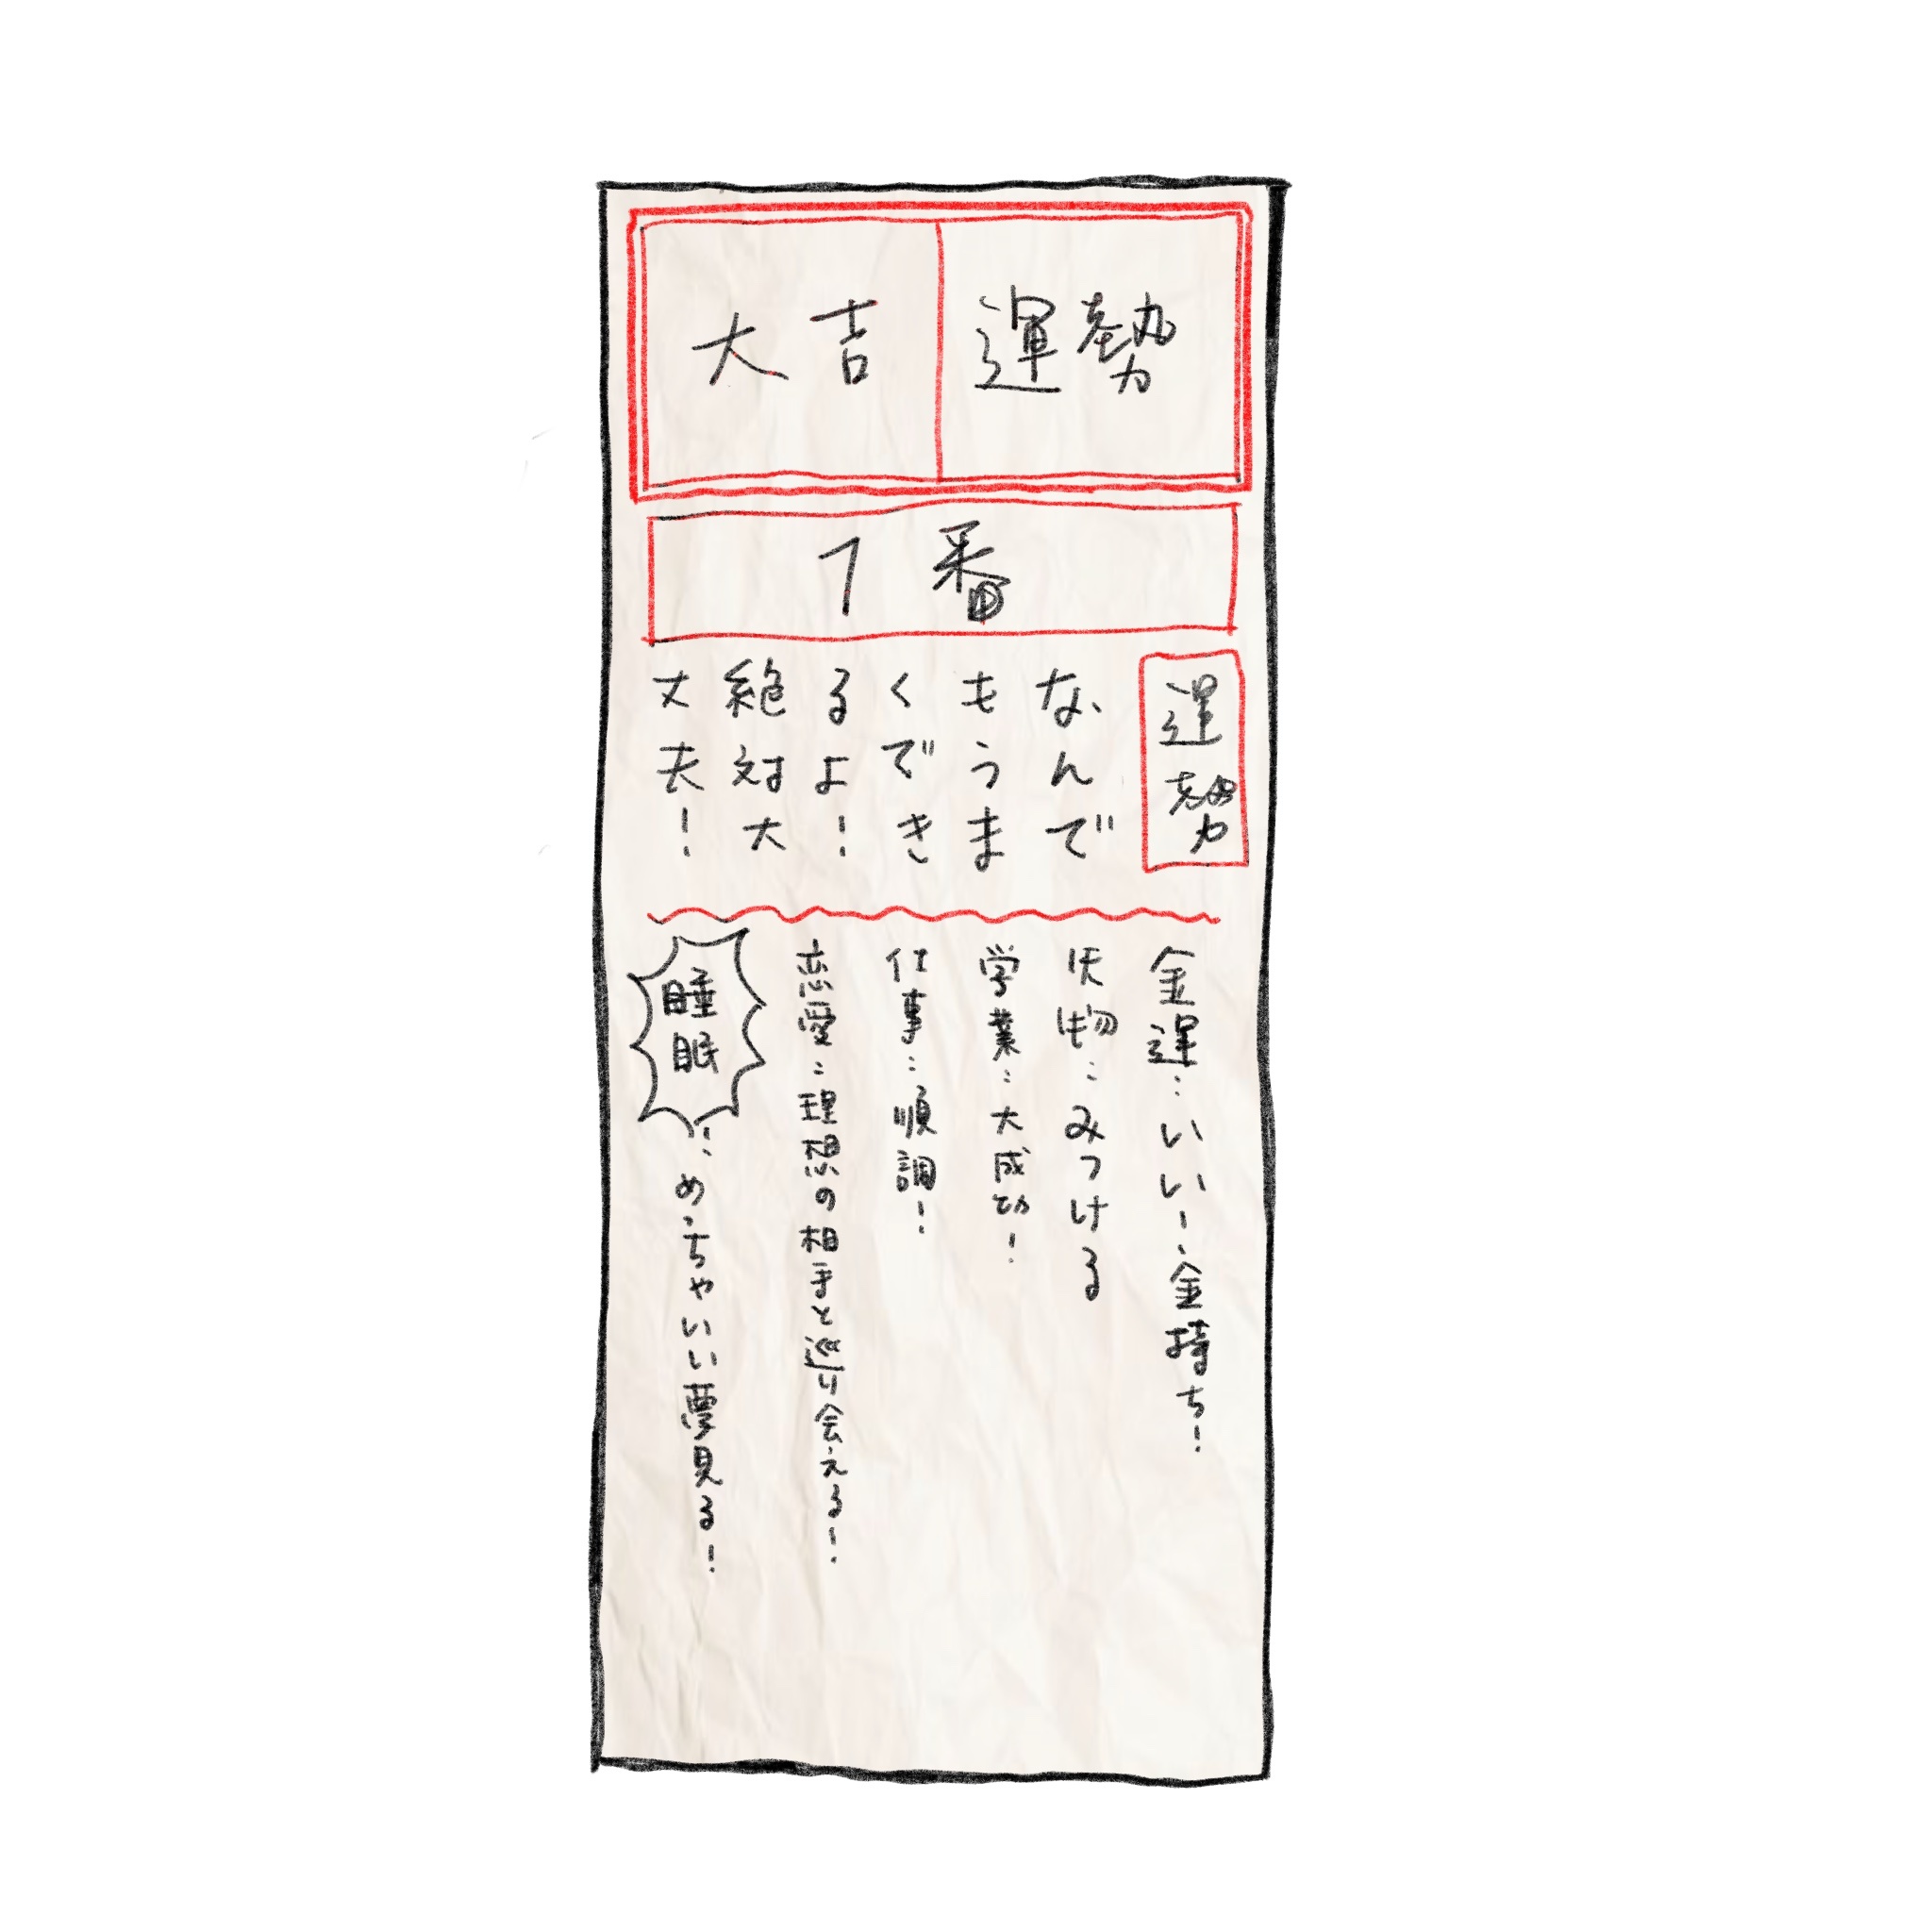 運勢
大吉
1番
運勢
なんで
もうま
くでき
るよ！
絶対大
丈夫！
金運：いいー金持ち！
失物：みつける
学業：大成功！
仕事：順調！
恋愛：理想の相手と巡り会える！
睡眠：めっちゃいい夢見る！